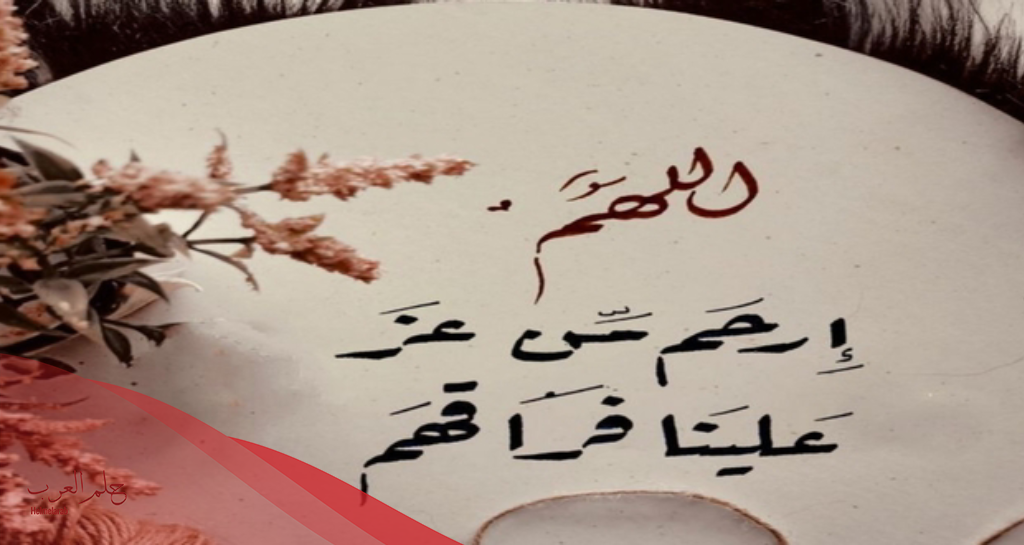 اللهمَّ
إرحَم مَّن عزَ
عَلينَا فرَاقهَم
حلم العرب